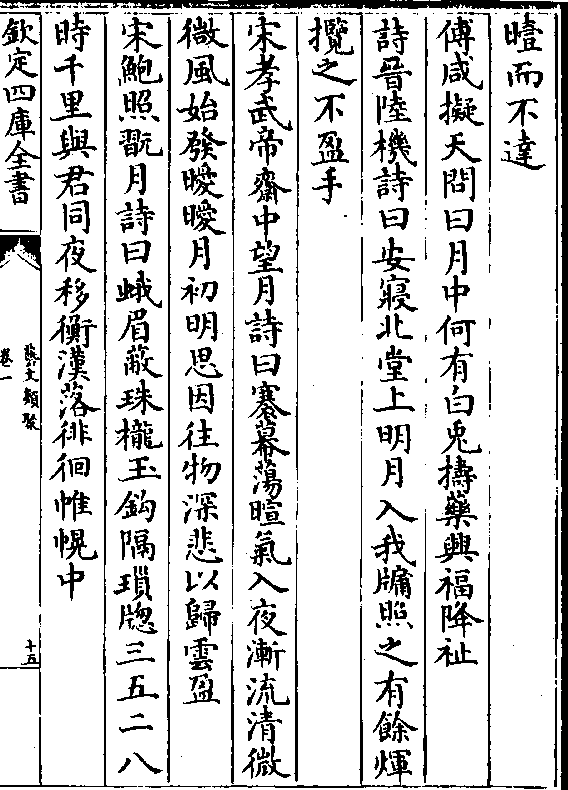 曀而不達
傅咸擬天問曰月中何有白兎擣藥興福降祉
詩晉陸機詩曰安寢北堂上明月入我牖照之有餘煇
攬之不盈手
宋孝武帝齋中望月詩曰褰幕蕩暄氣入夜漸流清微
微風始發曖曖月初明思因往物深悲以歸雲盈
宋鮑照翫月詩曰蛾眉蔽珠櫳玉鈎隔瑣牎三五二八
時千里與君同夜移衡漢落徘徊帷幌中
欽定四庫全書
藝文類聚
卷一
十五